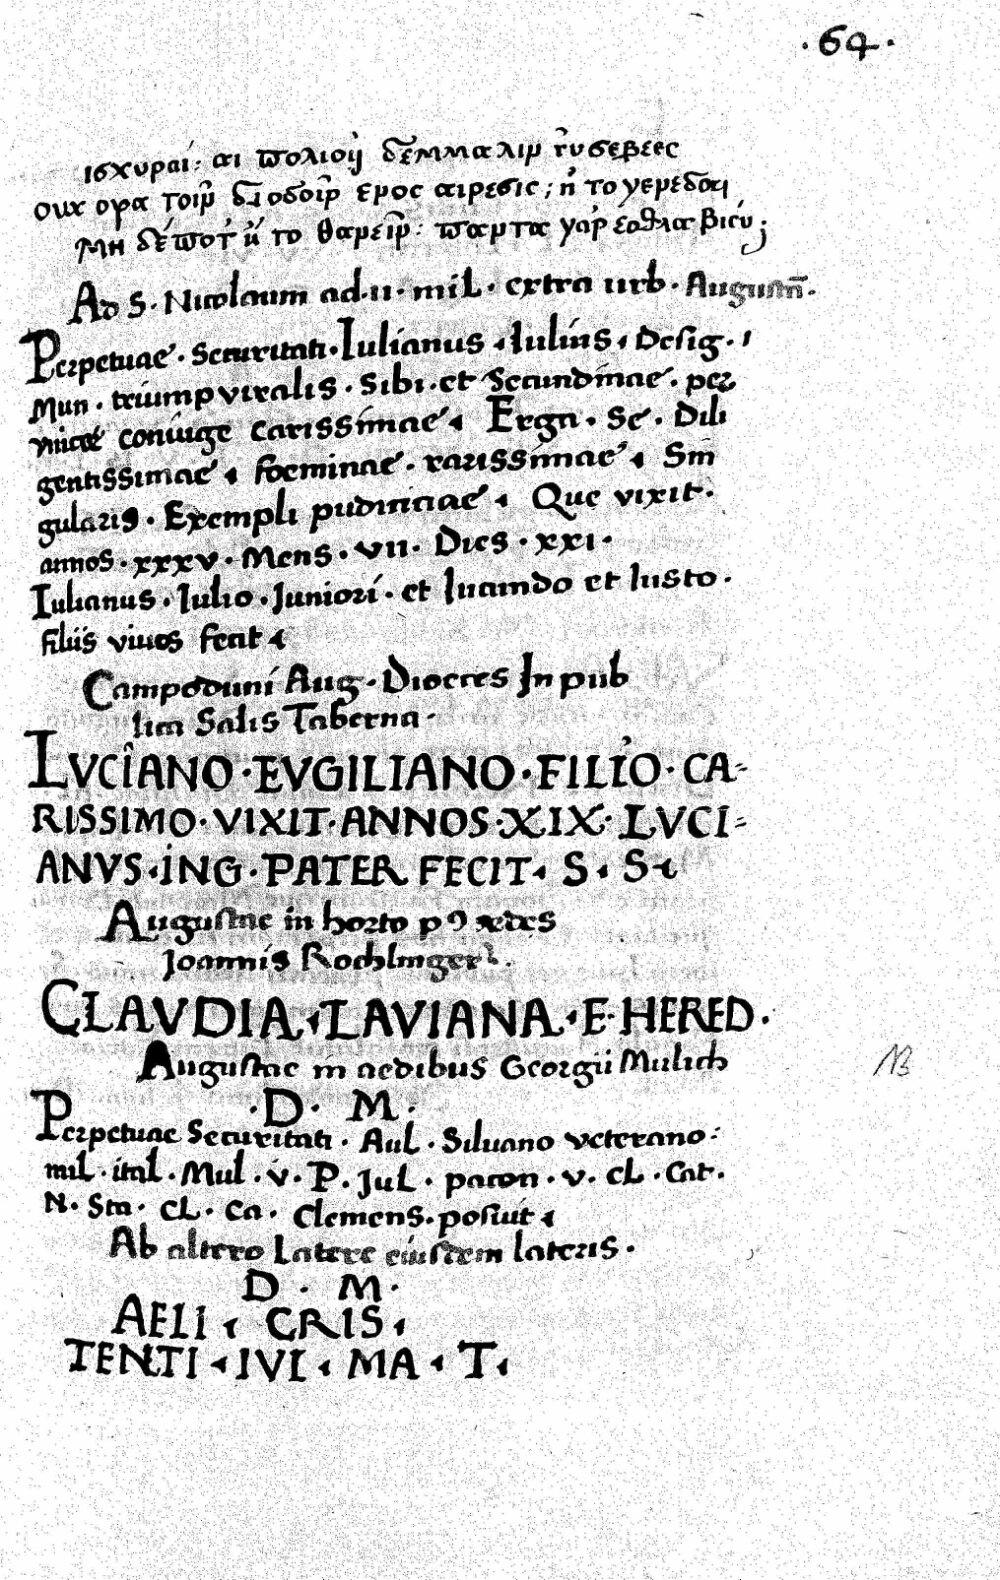 · 64 ·
ισχυραι: αι πολιοὶ δέμμαλιμ ἐυσεβεες
ουκ ορα τοιν διοδοιν ερος αιρεσις; ἢ το γερεδαι
Μη δέποτ' ἢ το θανειν: παντα γαρ εσθλα βιου;
Ad S · Nicolaum ad · ii · mil · extra urb · Augustā ·
Perpetuae · Securitati · Iulianus · Iulius · Desig ·
Mun · triumpviralis · Sibi · et Secundinae · per
vincae coniuge carissimae · Erga · Se · Dili
gentissimae · foeminae · rarissimae · Sin
gularis · Exempli pudiciciae · Que vixit ·
annos · xxxv · Mens · vii · Dies · xxi ·
Iulianus · Iulio · Juniori · et Iucundo et Iusto ·
filiis vivos fecit ·
Campoduni Aug · Dioeces In pub
lica Salis Taberna ·
LVCIANO · EVGILIANO · FILIO · CA-
RISSIMO · VIXIT · ANNOS · XIX · LVCI-
ANVS · ING · PATER FECIT · S · S ·
Augustae in horto pꝯ aedes
Joannis Rochlinger ·
CLAVDIA · LAVIANA · E · HERED ·
Augustae in aedibus Georgii Mulich
· D · M ·
Perpetuae Securitati · Aul · Silvano veterano ·
mil · ital · Mul · v · P · Jul · pacon · v · CL · Cat ·
N · Sta · CL · Ca · Clemens · posuit ·
Ab altero Latere eiusdem lateris ·
D · M ·
AELI · CRIS ·
TENTI · IVI · MA · T ·